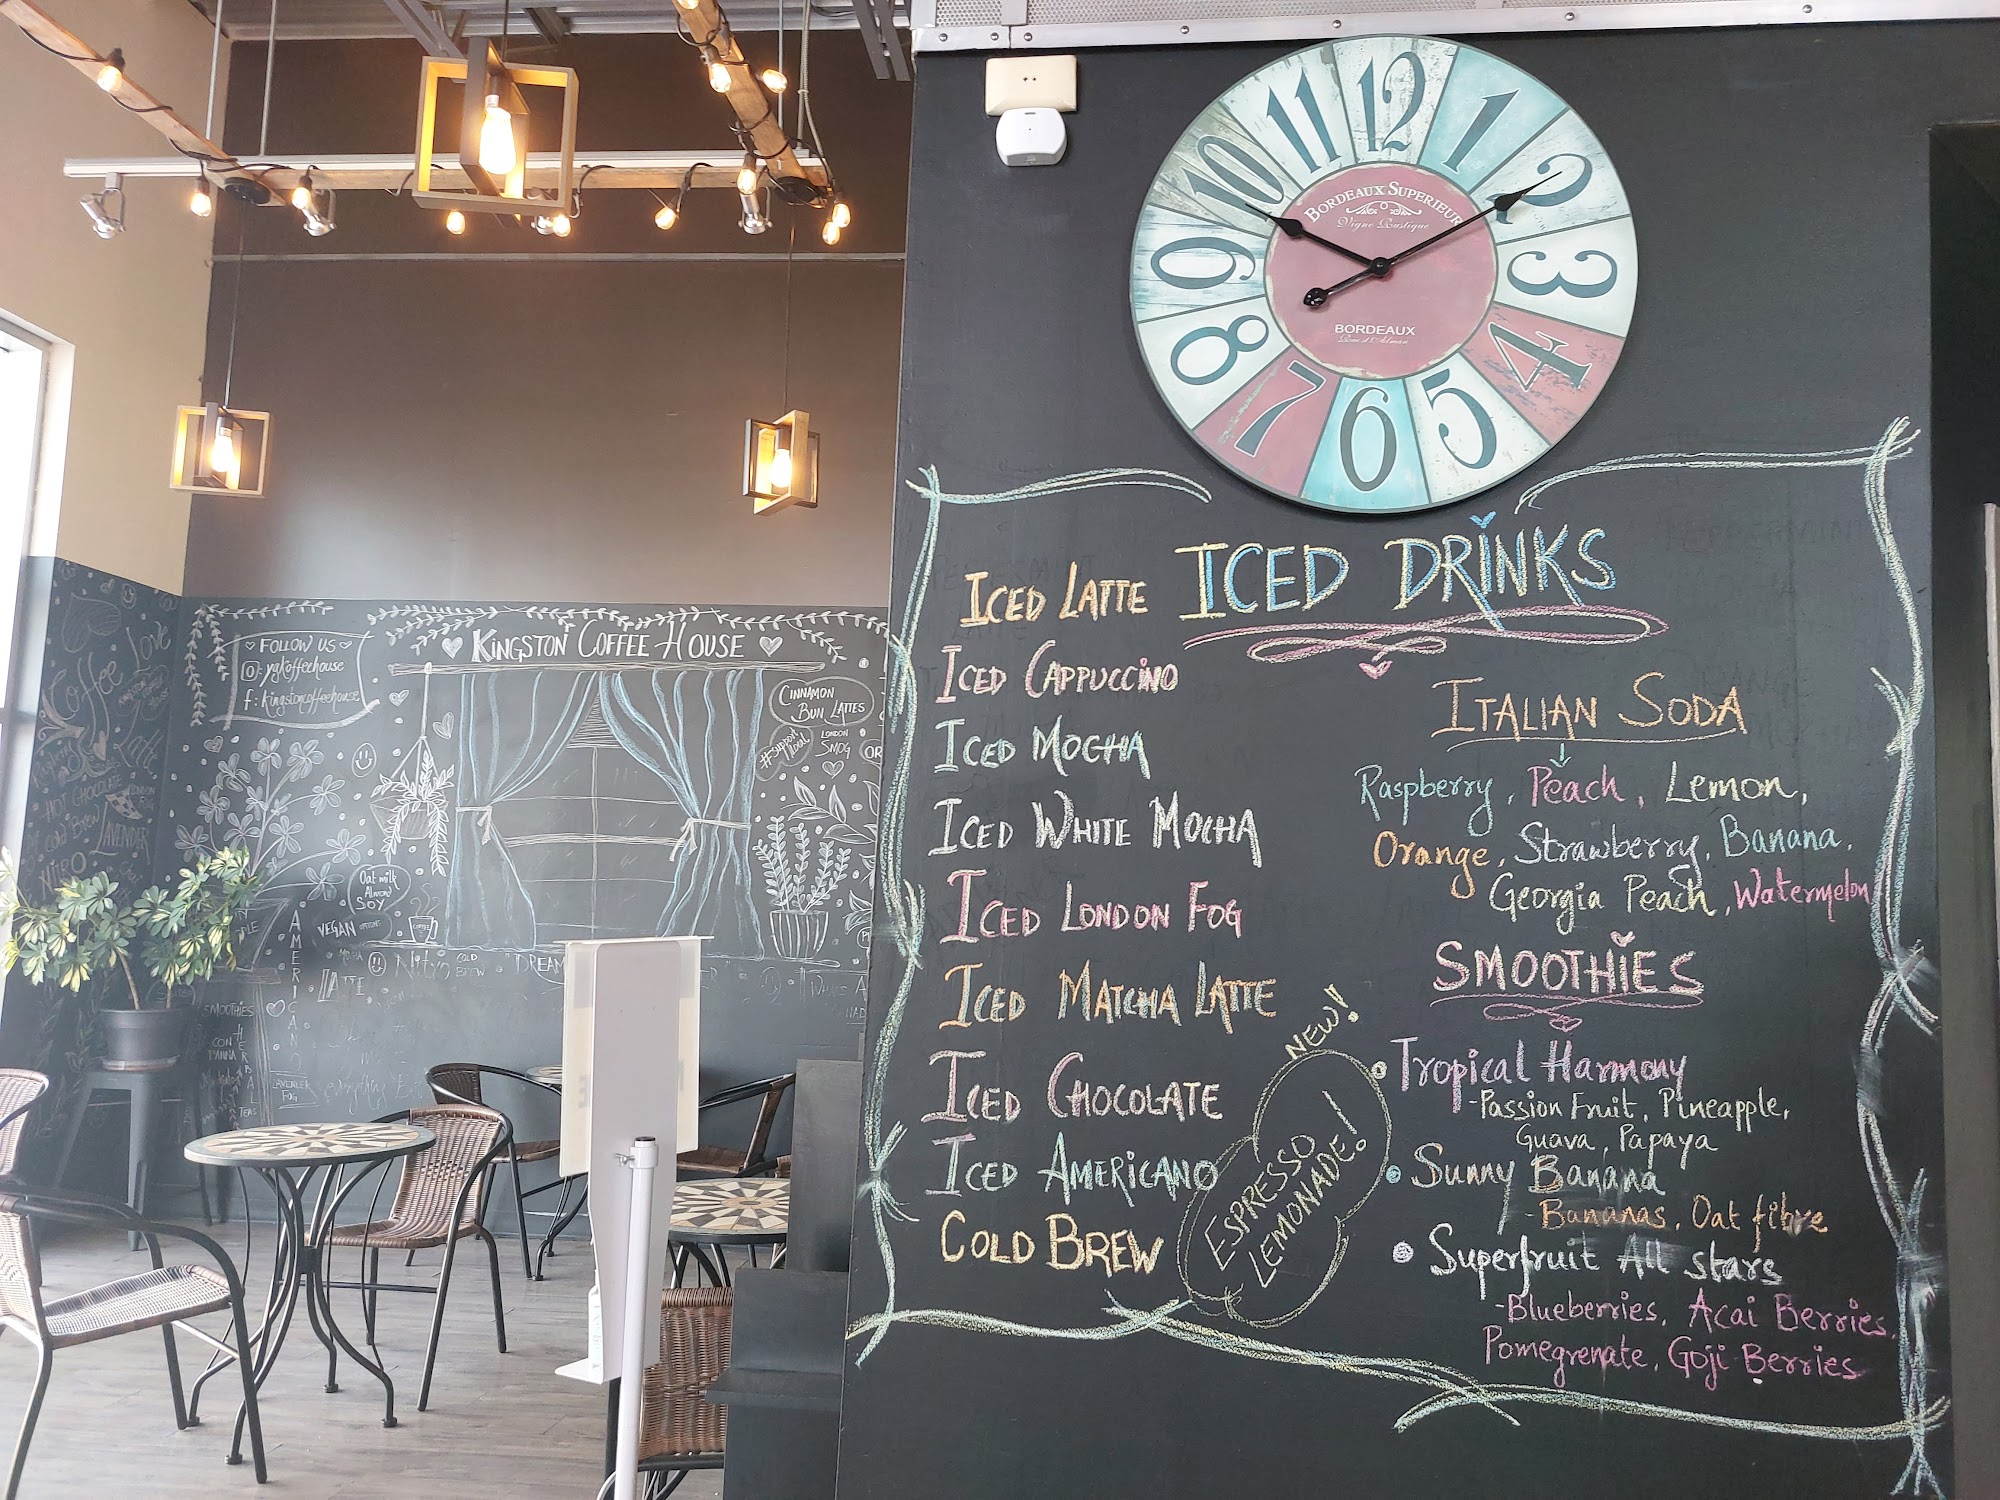 12
1
2
3
4
5
6
7
8
9
10
11
BORDEAUX SUPERIEUR
Vigne Rustique
BORDEAUX
ICED DRINKS
ICED LATTE
ICED CAPPUCCINO
ICED MOCHA
ICED WHITE MOCHA
ICED LONDON FOG
ICED MATCHA LATTE
ICED CHOCOLATE
ICED AMERICANO
COLD BREW
NEW!!
ESPRESSO
LEMONADE!
ITALIAN SODA
Raspberry, Peach, Lemon,
Orange, Strawberry, Banana,
Georgia Peach, Watermelon
SMOOTHIES
Tropical Harmony
-Passion Fruit, Pineapple,
Guava, Papaya
Sunny Banana
-Bananas, Oat fibre
Superfruit All stars
-Blueberries, Acai Berries,
Pomegrenate, Goji Berries
FOLLOW US
: ygkoffeehouse
f: kingstoncoffeehouse
KINGSTON COFFEE HOUSE
CINNAMON
BUN LATTES
#support
local
LONDON
SMOG
Oat milk
Almond
SOY
VEGAN OPTIONS
COFFEE
MOCHA
LATTE
Nitro
COLD
BREW
DREAM
AMERICANO
SMOOTHIES
CON
PANNA
HERBAL
TEAS
LAVENDER
FOG
Coffee
Love
Latte
HOT CHOCOLATE
LONDON
FOG
COLD BREW
LAVENDER
NITRO